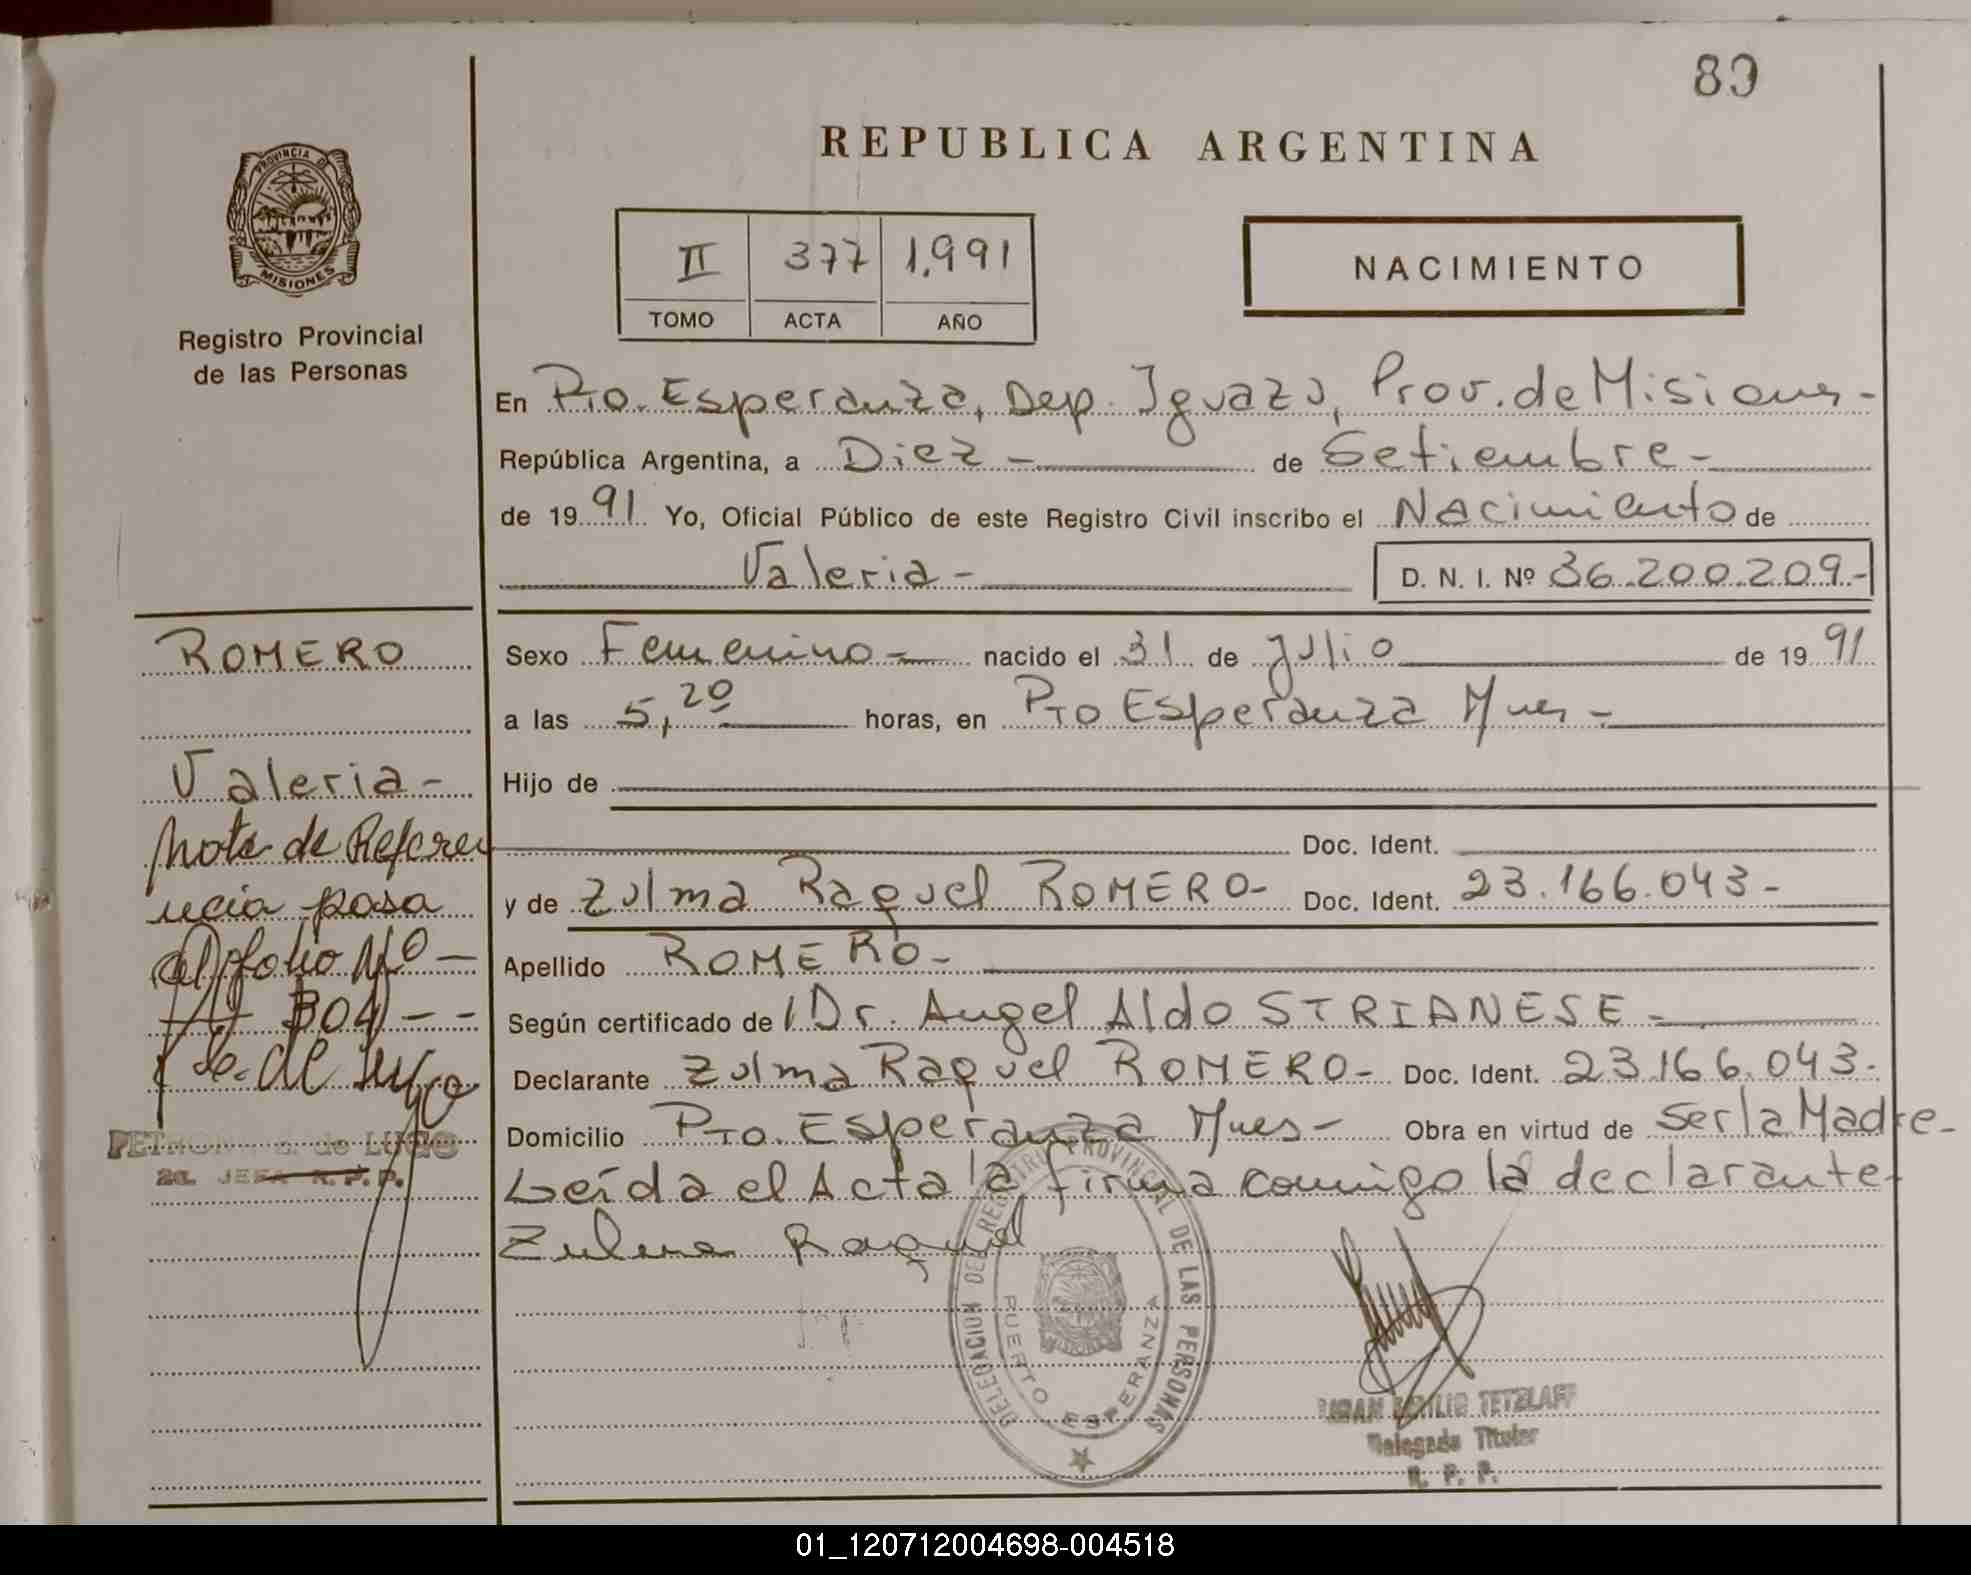 89
PROVINCIA DE
MISIONES
Registro Provincial
de las Personas
REPUBLICA ARGENTINA
II 377 1.991
TOMO ACTA AÑO
NACIMIENTO
En Pto. Esperanza, Dep. Iguazú, Prov. de Misiones-
República Argentina, a Diez - de Setiembre-
de 1991 Yo, Oficial Público de este Registro Civil inscribo el Nacimiento de
Valeria- D. N. I. Nº 36.200.209.-
ROMERO
Valeria-
Nota de Referen
ncia pasa
al folio Nº -
304 - -
de Lugo
de LUGO
2a. JEFA R. P. P.
Sexo Femenino- nacido el 31 de Julio de 1991
a las 5,20 horas, en Pto Esperanza Mnes-
Hijo de
Doc. Ident.
y de Zulma Raquel ROMERO- Doc. Ident. 23.166.043-
Apellido ROMERO-
Según certificado de Dr. Angel Aldo STRIANESE-
Declarante Zulma Raquel ROMERO- Doc. Ident. 23.166.043-
Domicilio Pto. Esperanza Mnes- Obra en virtud de Ser la Madre-
Leída el Acta la firma conmigo la declarante-
Zulma Raquel
DELEGACION DEL REGISTRO PROVINCIAL DE LAS PERSONAS
PUERTO ESPERANZA
TETZLAFF
Delegado Titular
R. P. P.
01_120712004698-004518